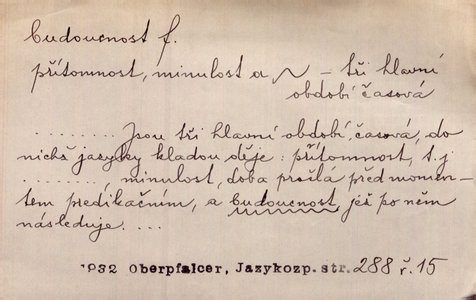 budoucnost f.
přítomnost, minulost a ~ – tři hlavní
období časová
......... Jsou tři hlavní období časová, do
nichž jazyky kladou děje: přítomnost, t.j.
........., minulost, doba prošlá před momen-
tem predikačním, a budoucnost jež po něm
následuje. ...
1932 Oberpfalcer, Jazykozp. str. 288 ř. 15